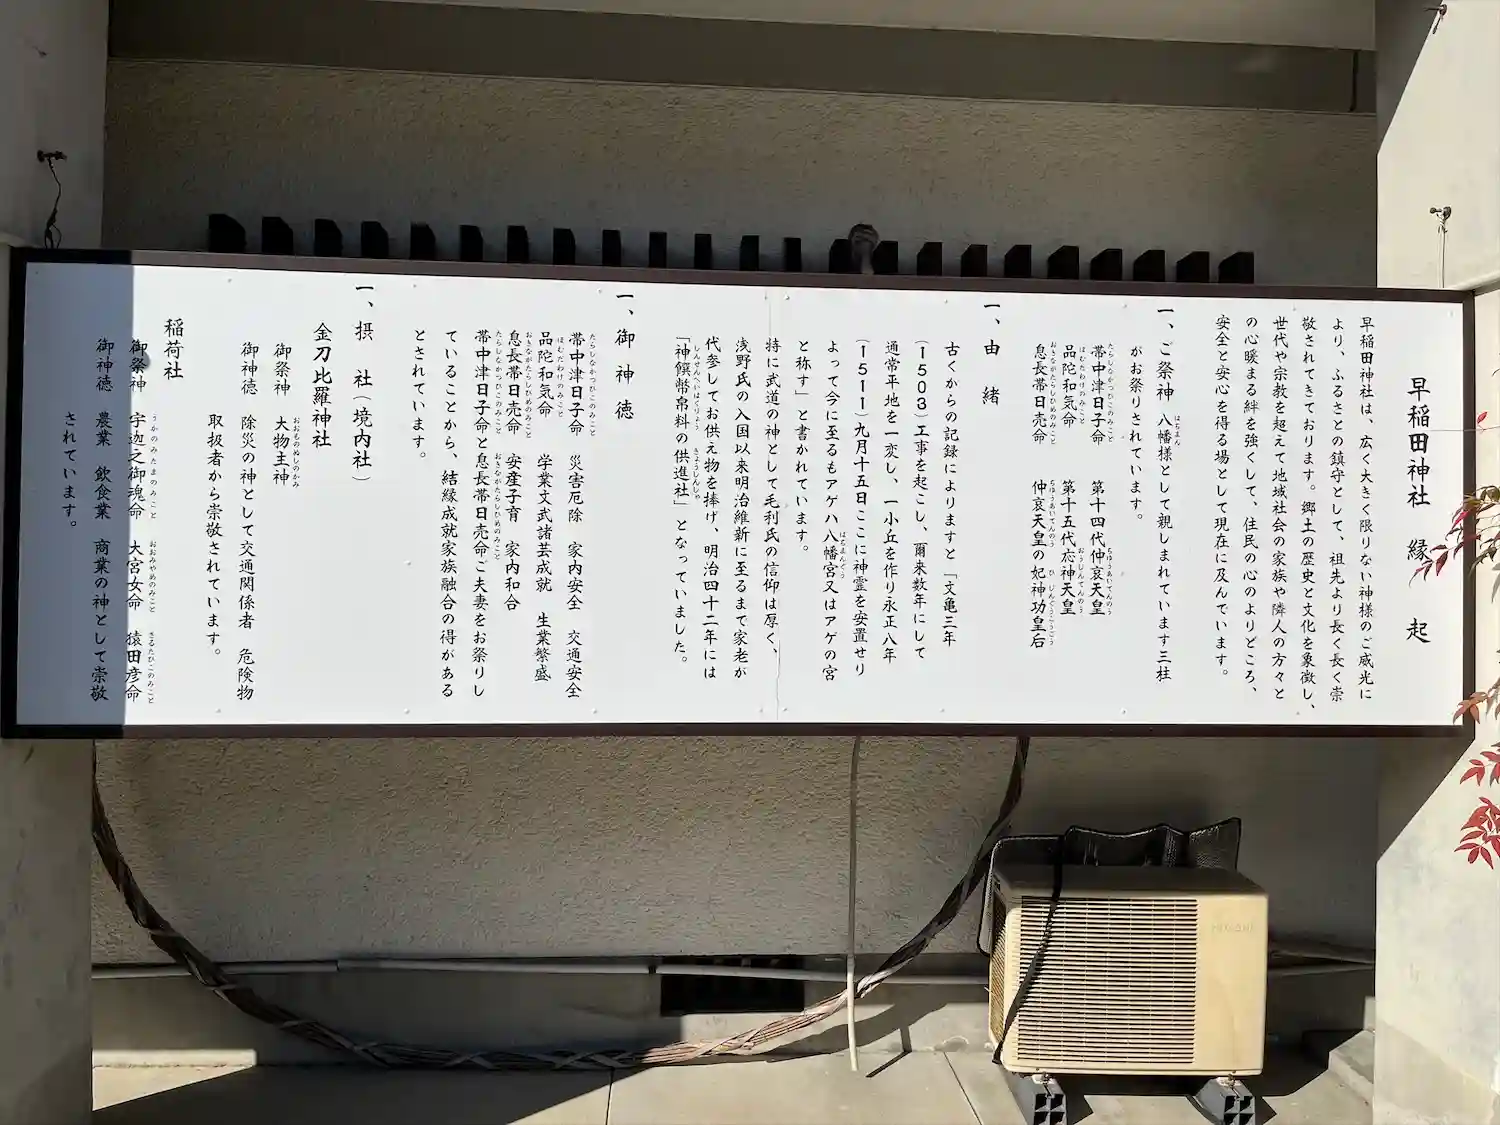 早稲田神社 縁起
早稲田神社は、広く大きく限りない神様のご威光に
より、ふるさとの鎮守として、祖先より長く長く崇
敬されてきております。郷土の歴史と文化を象徴し、
世代や宗教を超えて地域社会の家族や隣人の方々と
の心暖まる絆を強くして、住民の心のよりどころ、
安全と安心を得る場として現在に及んでいます。
一、ご祭神 八幡様として親しまれています三柱
がお祭りされています。
帯中津日子命 第十四代仲哀天皇
品陀和気命 第十五代応神天皇
息長帯日売命 仲哀天皇の妃神功皇后
一、由 緒
古くからの記録によりますと「文亀三年
(1503)工事を起こし、爾来数年にして
通常平地を一変し、一小丘を作り永正八年
(1511)九月十五日ここに神霊を安置せり
よって今に至るもアゲハ八幡宮又はアゲの宮
と称す」と書かれています。
特に武道の神として毛利氏の信仰は厚く、
浅野氏の入国以来明治維新に至るまで家老が
代参してお供え物を捧げ、明治四十二年には
「神饌幣帛料の供進社」となっていました。
一、御神徳
帯中津日子命 災害厄除 家内安全 交通安全
品陀和気命 学業文武諸芸成就 生業繁盛
息長帯日売命 安産子育 家内和合
帯中津日子命と息長帯日売命ご夫妻をお祭りし
ていることから、結縁成就家族融合の得がある
とされています。
一、摂 社(境内社)
金刀比羅神社
御祭神 大物主神
御神徳 除災の神として交通関係者 危険物
取扱者から崇敬されています。
稲荷社
御祭神 宇迦之御魂命 大宮女命 猿田彦命
御神徳 農業 飲食業 商業の神として崇敬
されています。